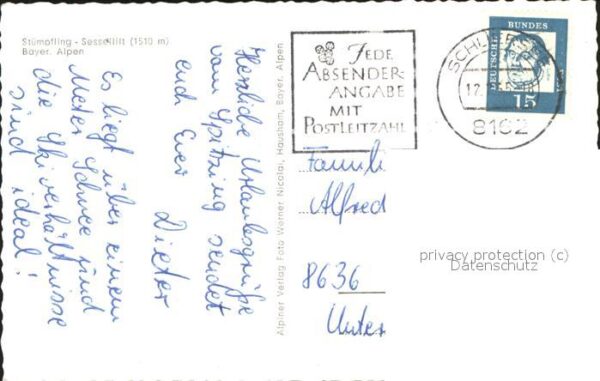 Stümpfling - Sessellift (1510 m)
Bayer. Alpen
Herzliche Urlaubsgrüße
vom Spitzing sendet
euch Euer
Dieter
Es liegt über einem
Meter Schnee und
die Skiverhältnisse
sind ideal!
Alpiner Verlag Foto Werner Nicolai, Hausham, Bayer. Alpen
JEDE
ABSENDER-
ANGABE
MIT
POSTLEITZAHL
SCHLIERSEE
17.
8162
DEUTSCHE
BUNDES
15
Familie
Alfred
8636
Unter
privacy protection (c)
Datenschutz